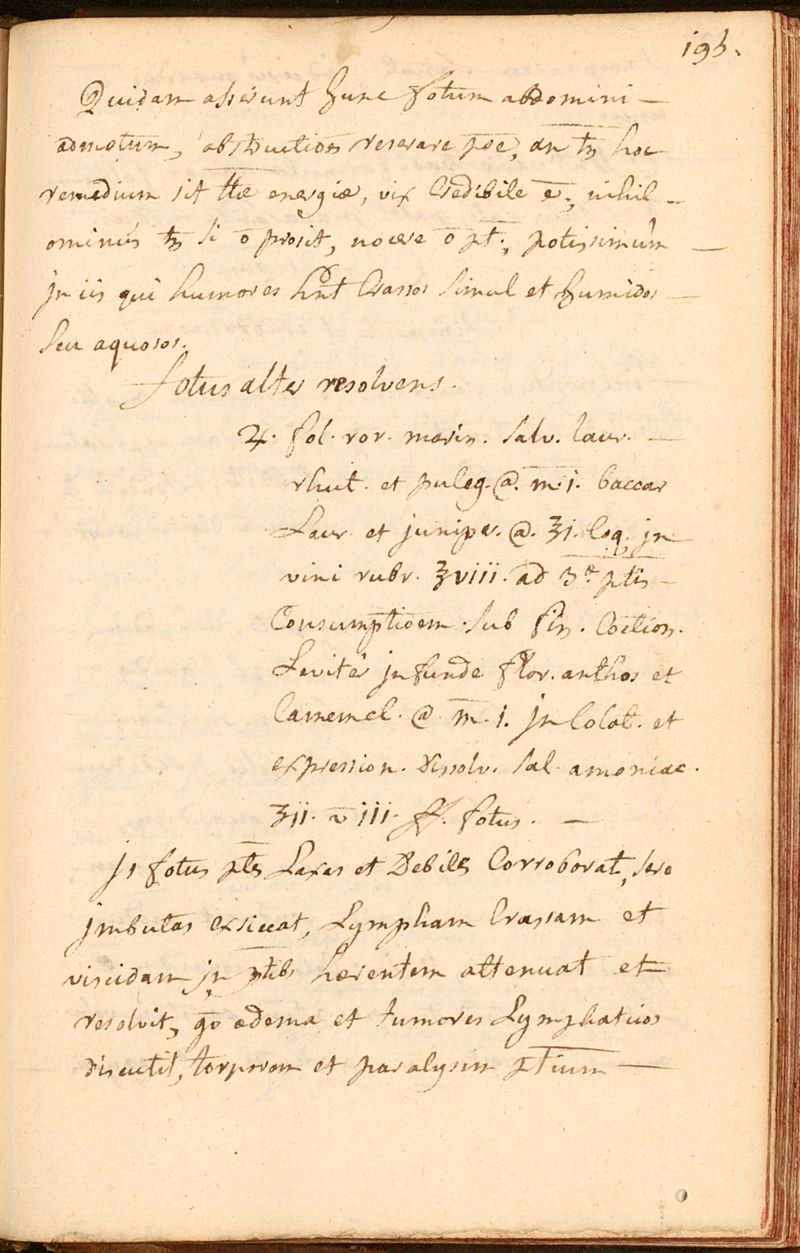 195.
Quidam asserunt hunc fotum abdomini —
admotum, obstructiões reserare põe, an tñ hoc
remedium sit ttæ energiæ, vix Credibile ē, nihil -
ominús tñ si ō prosit, nocere ō pt, potissimùm —
jn iis qui humores hñt Crassos simul et humidos —
seu aquosos.
fotus alter resolvens.
♃. fol. ror. marin. salv. laur. —
rhut. et puleg. @. m. j. baccar
Laur. et juniper. @. ʒi. Coq. jn
vini rubr. ℥viii. ad 3æ ptis —
Consumptioem. sub fin. Coction.
Leviter jnfunde flor. anthos et
Camemel. @. m. j. jn Colat. et
expression. dissolv. sal. amoniac.
ʒii. v iii. ff. fotus. —
js fotus ptes Laxas et Debiles Corroborat, sero
jmbutas exsiccat, Lympham Crassam et
viscidam jn ptibs hærentem attenuat et
resolvit, qõ ædema et tumores Lymphaticos
discutit, torporem et paralysim ptium —